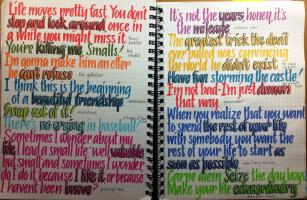 Life moves pretty fast. You don't
stop and look around once in
a while you might miss it.
You're killing me, Smalls!
I'm gonna make him an offer
he can't refuse
I think this is the beginning
of a beautiful friendship
Snap out of it!
There's no crying in baseball?
Sometimes I wonder about my
life. I lead a small life well valuable
but small and sometimes I wonder
do I do it because I like it or because
I haven't been brave
It's not the years, honey, it's
the mileage
The greatest trick the devil
ever pulled was convincing
the world he didn't exist
Have fun storming the castle.
I'm not bad-I'm just drawn
that way.
When you realize that you want
to spend the rest of your life
with somebody you want the
rest of your life to start as
soon as possible
Carpe diem Seize the day boys
Make your life extraordinary